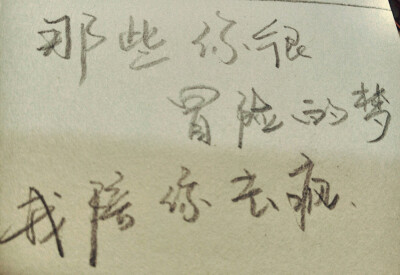 那些你很
冒险的梦
我陪你去疯.